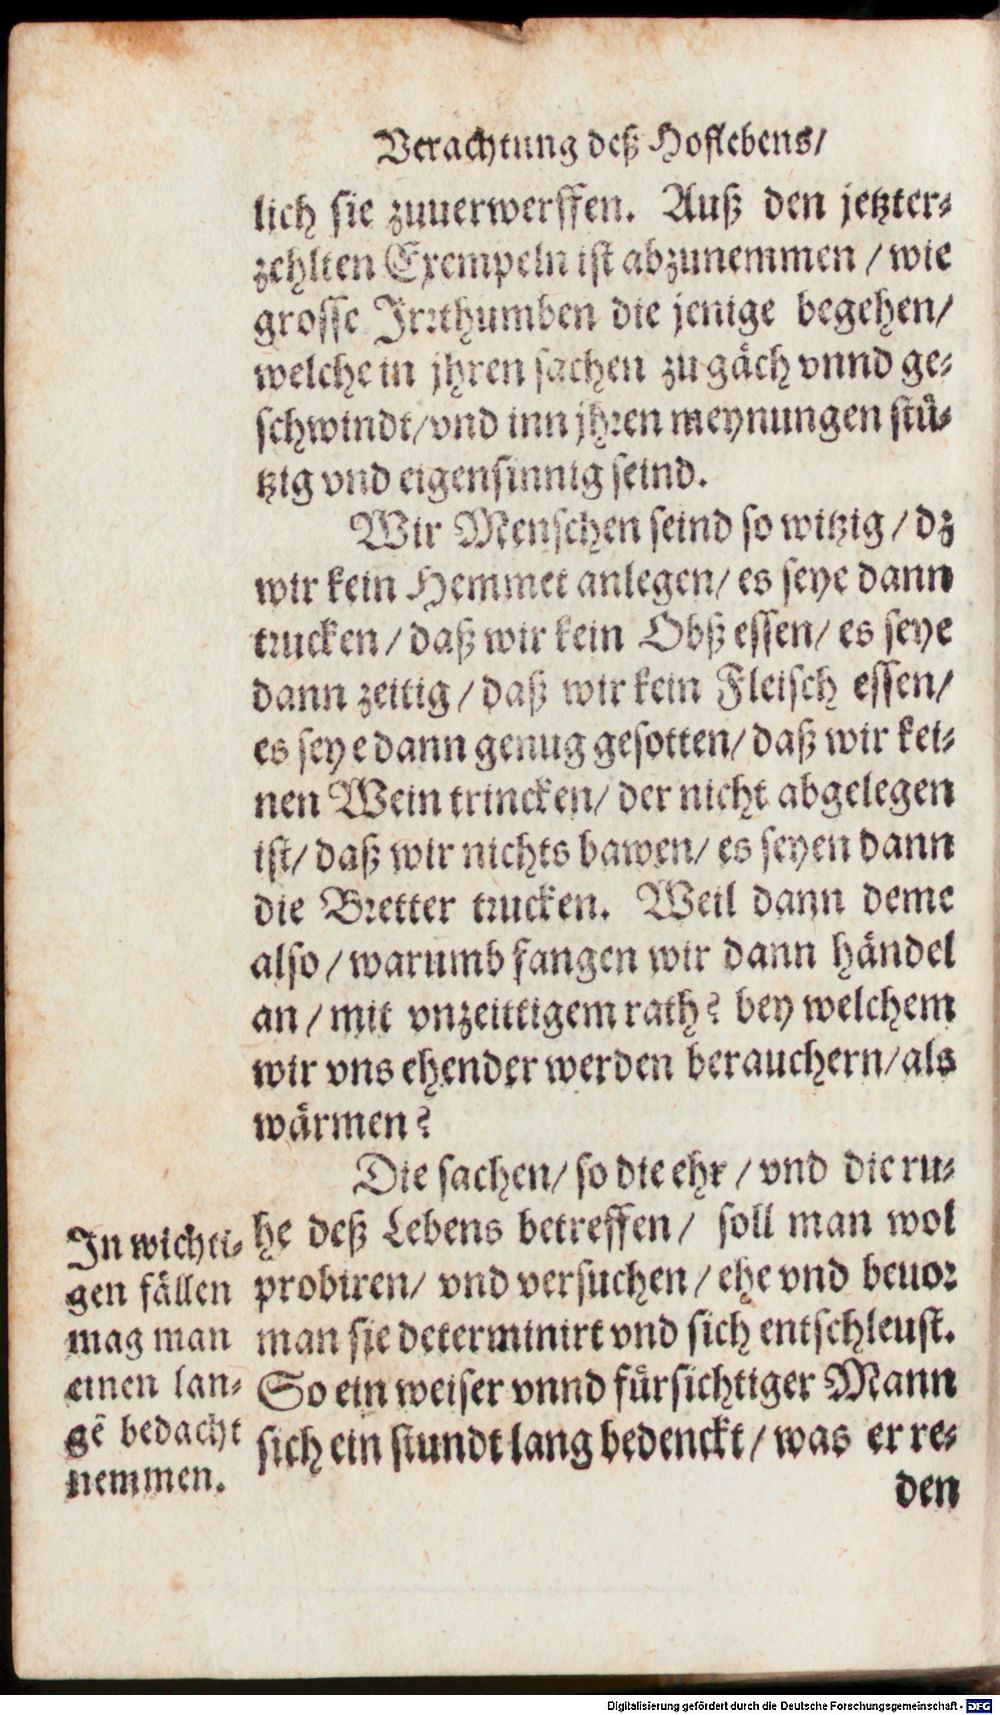 Verachtung deß Hoflebens/
lich sie zuuerwerffen. Auß den jetzter-
zehlten Exempeln ist abzunemmen / wie
grosse Irrthumben die jenige begehen/
welche in jhren sachen zu gäch vnnd ge-
schwindt/vnd inn jhren meynungen stü-
tzig vnd eigensinnig seind.
Wir Menschen seind so witzig / dz
wir kein Hemmet anlegen/ es seye dann
trucken / daß wir kein Obß essen/ es seye
dann zeitig / daß wir kein Fleisch essen/
es seye dann genug gesotten/ daß wir kei-
nen Wein trincken/ der nicht abgelegen
ist/ daß wir nichts bawen/ es seyen dann
die Bretter trucken. Weil dann deme
also / warumb fangen wir dann händel
an / mit vnzeittigem rath? bey welchem
wir vns ehender werden berauchern/als
wärmen?
Die sachen/ so die ehr / vnd die ru-
he deß Lebens betreffen/ soll man wol
probiren/ vnd versuchen / ehe vnd beuor
man sie determinirt vnd sich entschleust.
So ein weiser vnnd fürsichtiger Mann
sich ein stundt lang bedenckt / was er re-
den
In wichti-
gen fällen
mag man
einen lan-
gẽ bedacht
nemmen.
Digitalisierung gefördert durch die Deutsche Forschungsgemeinschaft - DFG